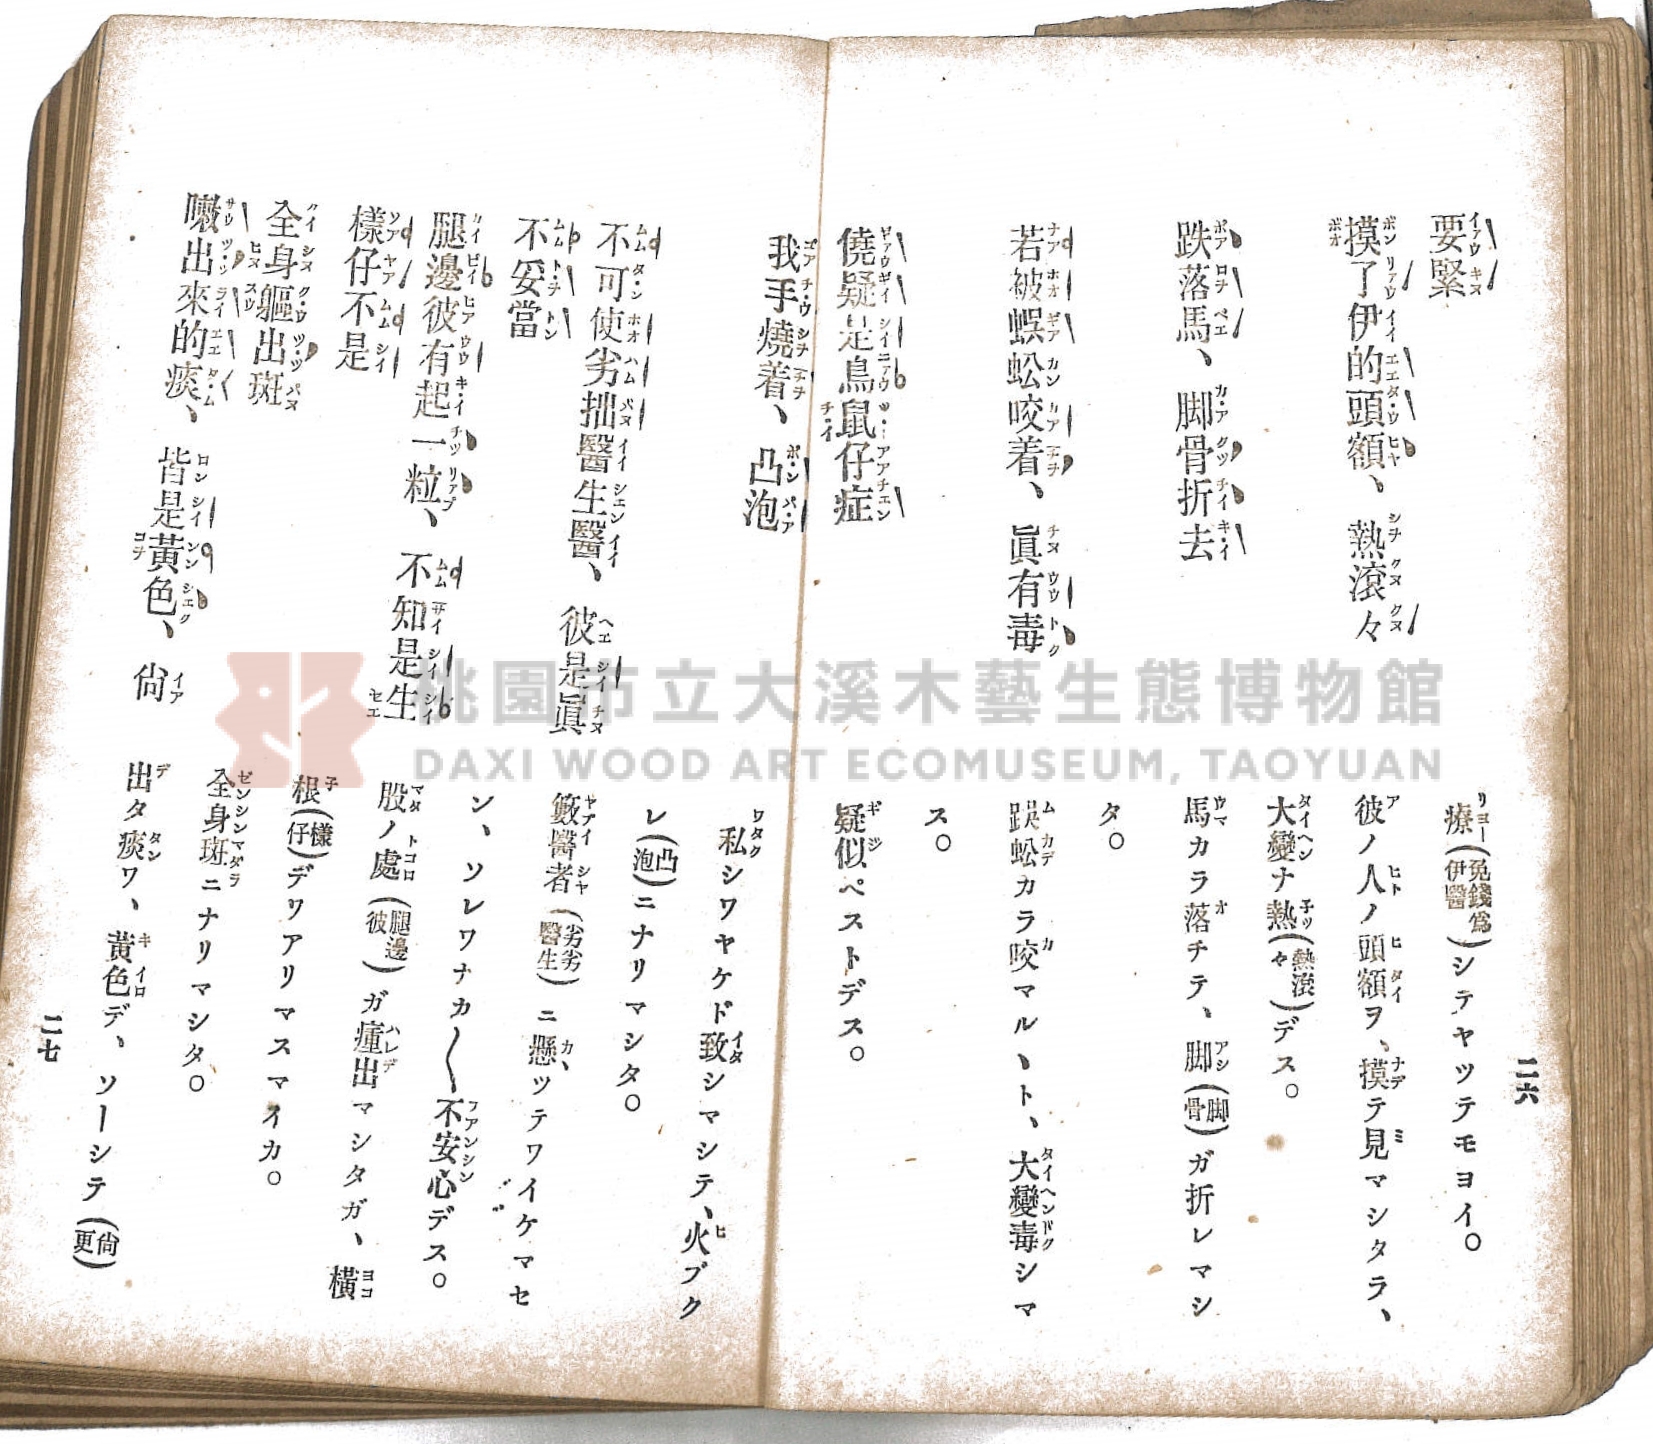 二六
要緊
摸了伊的頭額、熱滾々
跌落馬、脚骨折去
若被蜈蚣咬着、眞有毒
僥疑是鳥鼠仔症
療(免錢爲伊醫)シテヤツテモヨイ。
彼ノ人ノ頭額ヲ、摸テ見マシタラ、
大變ナ熱(熱滾々)デス。
馬カラ落チテ、脚(脚骨)ガ折レマシ
タ。
蜈蚣カラ咬マルヽト、大變毒シマ
ス。
疑似ペストデス。
我手燒着、凸泡
不可使劣拙醫生醫、彼是眞
不妥當
腿邊彼有起一粒、不知是生
樣仔不是
全身軀出斑
嗽出來的痰、皆是黃色、尙
私シワヤケド致シマシテ、火ブク
レ(凸泡)ニナリマシタ。
籔醫者(劣劣醫生)ニ懸ツテワイケマセ
ン、ソレワナカ〱不安心デス。
股ノ處(腿邊彼)ガ瘇出マシタガ、橫
根(樣仔)デワアリマスマイカ。
全身斑ニナリマシタ。
出タ痰ワ、黃色デ、ソーシテ(尙更)
二七
桃園市立大溪木藝生態博物館
DAXI WOOD ART ECOMUSEUM, TAOYUAN